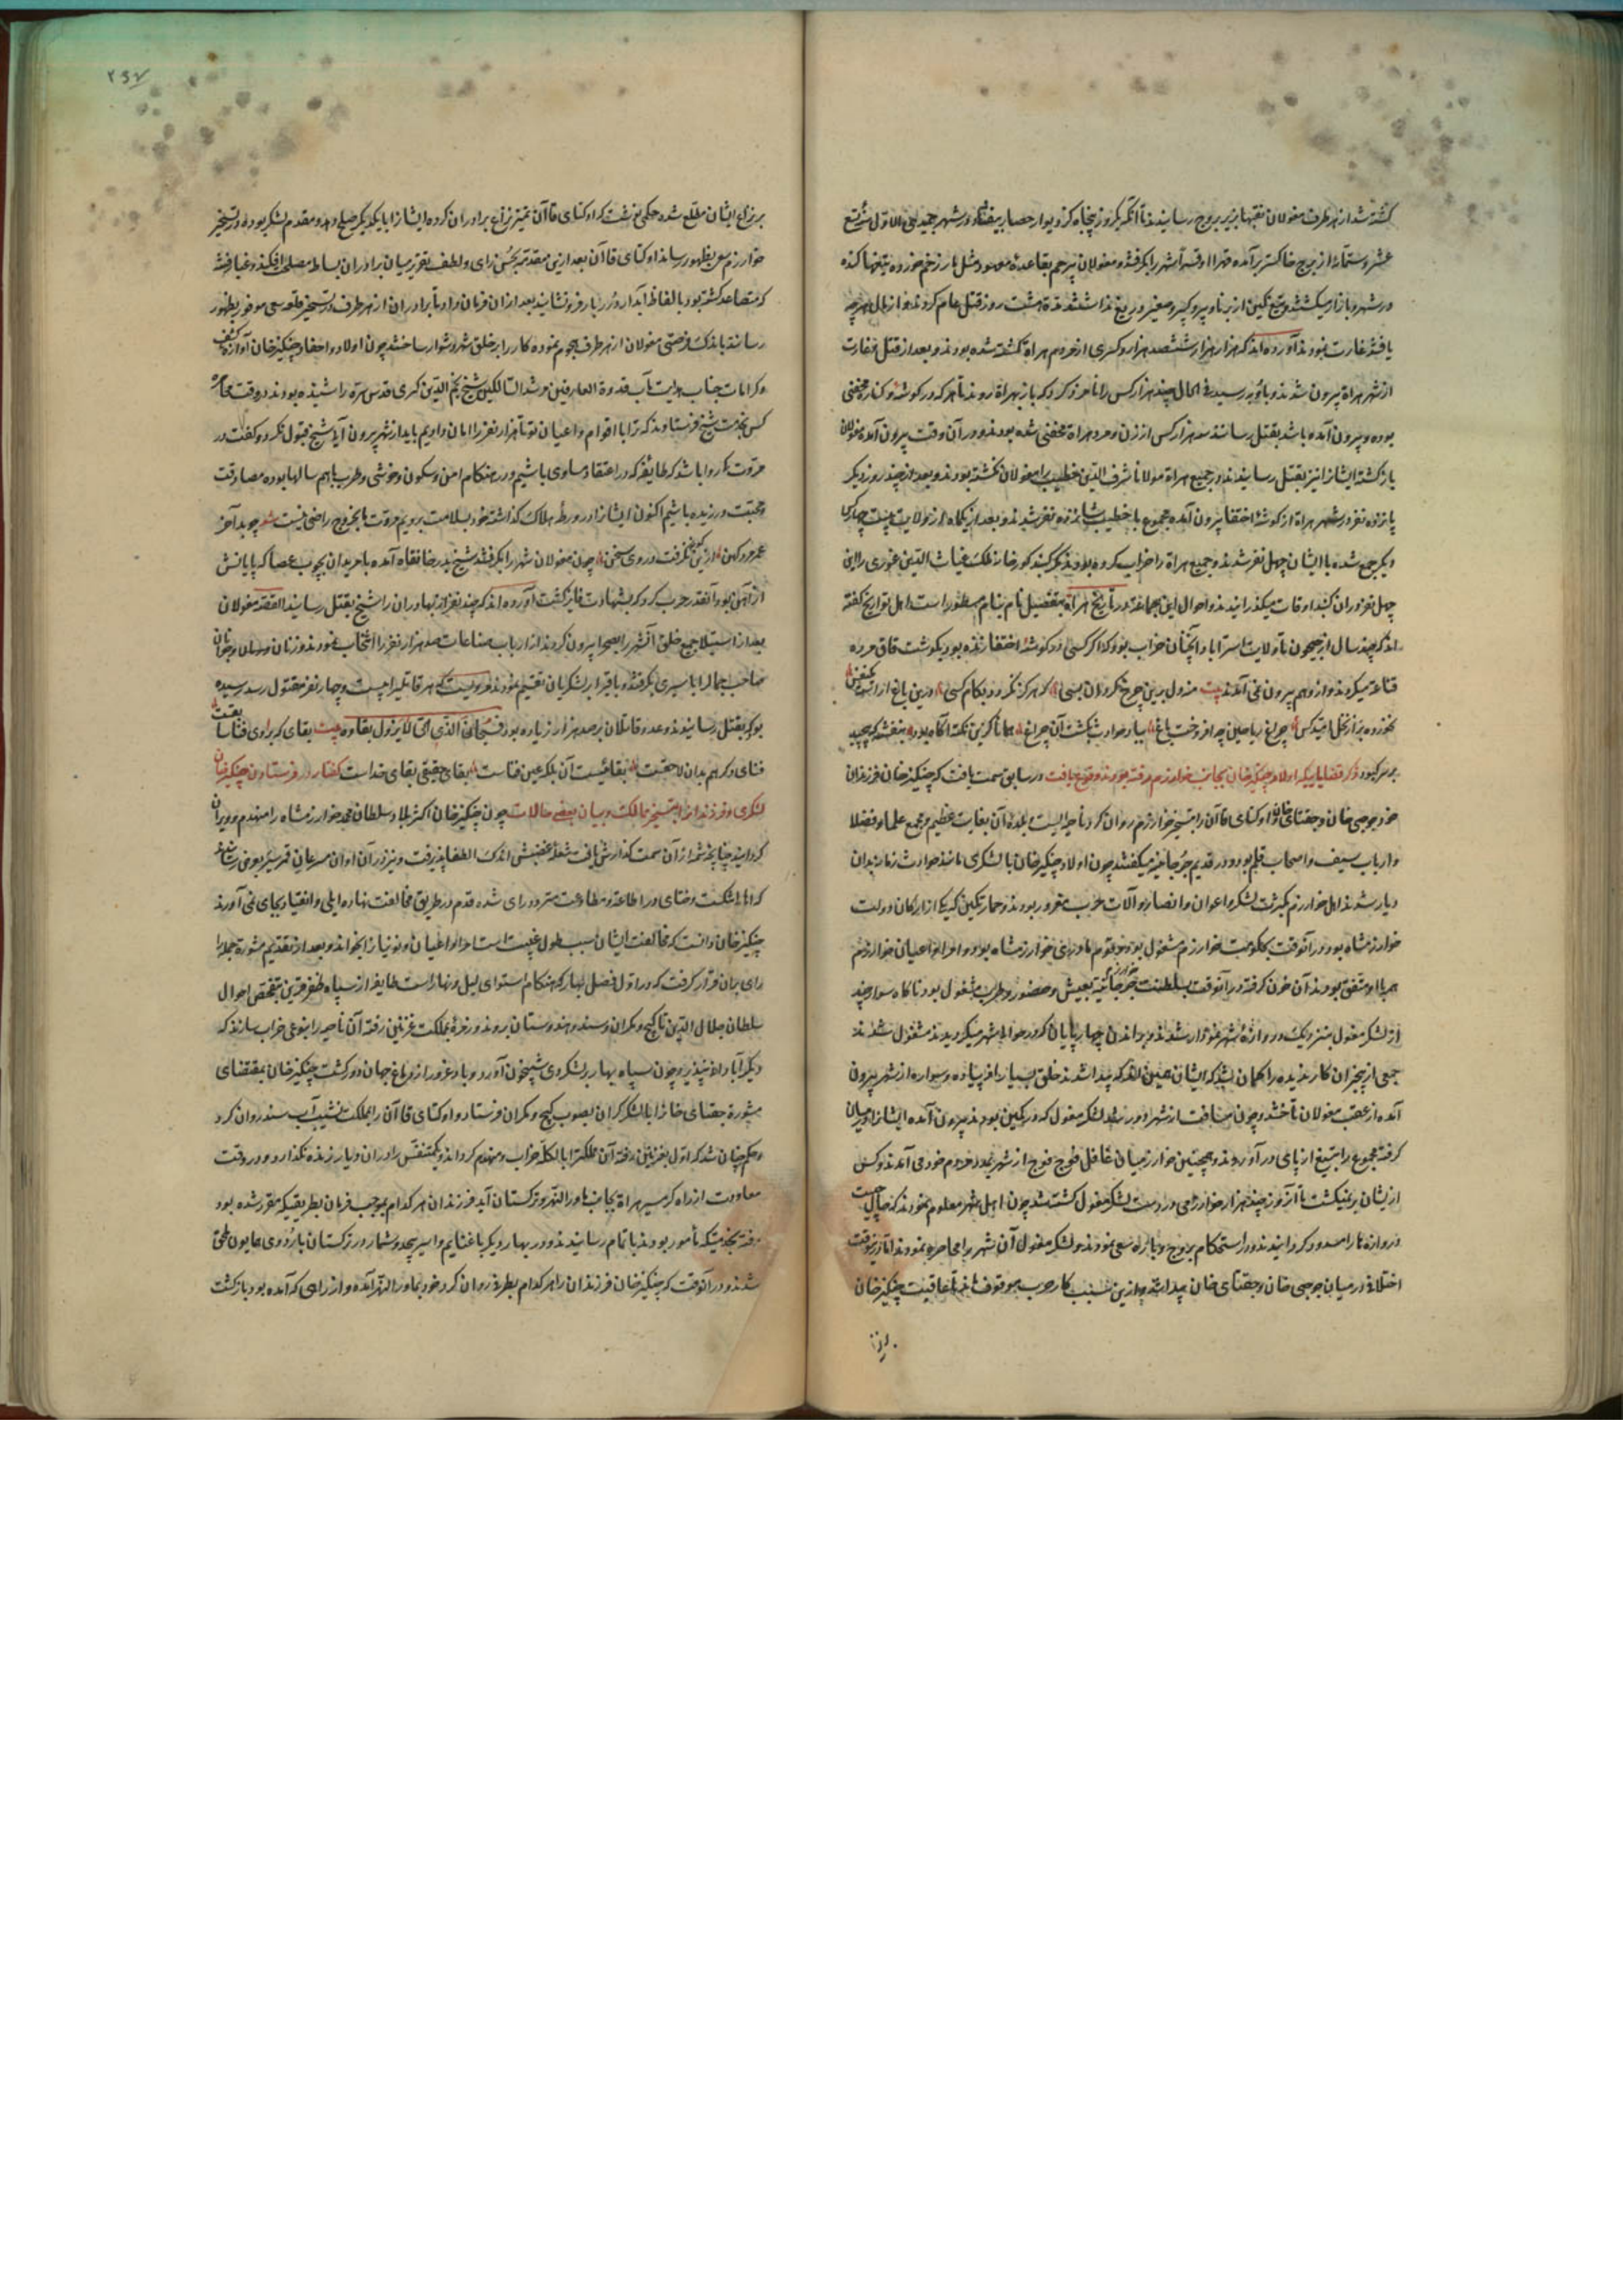 کشته شد از هر طرف مغولان نقبها بزیر بروج رسانیدند تا آنکه یکروز پنجاه کز دیوار حصار بیفتاد و در شهر جمیدی الاول سنه تسع
عشر و ستمائه از برج خاکستر برآمده قهرا و قسرا شهر را بکرفتند و مغولان بیرحم بقاعدهٔ معهود مثل مار زخم خورده تیغها کنده
در شهر و بازار میکشتند و تیغ کین از برنا و پیر و کبیر و صغیر دریغ نداشتند مدة هشت روز قتل عام کردند و از مال هر چه
یافتند غارت نمودند آورده اند که هزار هزار و ششصد هزار و کسری از مردم هراة کشته شده بودند و بعد از قتل و غارت
از شهر هراة بیرون شدند و رسید فی الحال چند هزار کس را نامزد کرد که باز بهراة روند تا هر که در کوشه و کناره مخفی
بوده و بیرون آمده باشد بقتل رسانند سه هزار کس از زن و مرد هراة مخفی شده بودند و در آن وقت بیرون آمده مغولان
باز کشته ایشانرا نیز بقتل رسانیدند و در جمیع هراة مولانا شرف الدین خطیب را مغولان نکشته بودند و بعد از چند روز دیکر
پانزده نفر در شهر هراة از کوشهٔ اختفا بیرون آمده مجموع با خطیب شانزده نفر شدند و بعد از یکماه از ولایت بیست چهار کس
دیکر جمع شده با ایشان چهل نفر شدند و جمیع هراة را خراب کرده بودند مکر کنبد کور خانهٔ ملک غیاث الدین غوری را این
چهل نفر در ان کنبد اوقات میکذرانیدند و احوال این جماعة در تاریخ هراة بتفصیل نام بنام مسطور است اهل تواریخ کفته
اند که چند سال از جیحون تا ولایت استراباد آنچنان خراب بود و کلا اکر کسی در کوشهٔ اختفا زنده بود بکوشت قاق مرده
قناعة میکردند و از وهم بیرون نمی آمدند بیت مدول برین چرخ نکردان بسی که هرکز نکردد بکام کسی درین باغ از آسیب یکنفس
نخورده بر از نخل امید کس چراغ ریاحین چو افروخت باغ بباد حوادث بکشت آن چراغ همانا کزین نکت آکاه بود بنفشه که پیچید
بر سر کبود ذکر قضایایی که اولاد چنکیز خان بجانب خوارزم رفته بودند وقوع یافت در سابق سمت یافت که چنکیز خان فرزندان
خود جوجی خان و جغتای خان و اوکتای قاآن را بتسخیر خوارزم روان کرد ناحیه ایست بلدهٔ آن بغایت عظیم و مجمع علما و فضلا
و ارباب سیف و اصحاب قلم بود و در قدیم جرجانیه میکفتند چون اولاد چنکیز خان با لشکری مانند حوادث زمان بدان
دیار رسیدند اهل خوارزم بکثرت لشکر و اعوان و انصار و آلات حرب مغرور بودند و خمارتکین که یکی از ارکان دولت
خوارزمشاه بود در آنوقت بحکومت خوارزم مشغول بود و خوارزمشاه بود و امرا و اعیان خوارزم
همه با او متفق بودند آن خون کرفته در آنوقت بسلطنت جرجانیه بعیش و حضور و طرب مشغول بود ناکاه سوار چند
از لشکر مغول بنزدیک دروازهٔ شهر نمودار شدند و براندن چهارپایان که در حوالی شهر میکردیدند مشغول شدند
جمعی از بیخبران کار ندیده را کمان شد که ایشان همین اند که پیدا شدند خلق بسیار از پیاده و سواره از شهر بیرون
آمده از عقب مغولان تاختند و چون مسافت از شهر دور شد لشکر مغول که در کمین بودند بیرون آمده ایشانرا در میان
کرفته مجموع را بتیغ از پای در آوردند و همچنین خوارزمیان غافل فوج فوج از شهر بمدد مردم خود می آمدند و کس
از یشان بر نمیکشت تا آنروز چند هزار خوارزمی در دست لشکر مغول کشته شد چون اهل شهر معلوم نمودند که حال چیست
دروازه ها را مسدود کردانیدند و در استحکام بروج و باره سعی نمودند و لشکر مغول آن شهر را محاصره نمودند اما در آنوقت
اختلاف در میان جوجی خان و جغتای خان پیدا شد و ازین سبب کار حرب موقوف ماند تا عاقبت چنکیز خان
بر نزاع
۲۹۷
بر نزاع ایشان مطلع شده حکمی نوشت که اوکتای قاآن تمیز نزاع برادران کرده ایشانرا با یکدیکر صلح دهد و مقدم لشکر بوده در تسخیر
خوارزم سعی بظهور رساند اوکتای قاآن بعد ازین مقدمه بحسن رای و لطف تقریر میان برادران بساط مصلحه افکند و غبار فتنه
که متصاعد کشته بود بالفاظ آبدار درر بار فرونشانید بعد از ان فرمان داد تا برادران از هر طرف در تسخیر قلعه سعی موفور بظهور
رسانند باندک فرصتی مغولان از هر طرف هجوم نموده کار را بر خلق شهر دشوار ساختند چون اولاد و احفاد چنکیز خان آوازهٔ کشف
و کرامات جناب هدایت مآب قدوة العارفین مرشد السالکین شیخ نجم الدین کبری قدس سره را شنیده بودند در وقت محاصره
کس بخدمت شیخ فرستادند که ترا با اقوام و اعیان تو تا هزار نفر را امان دادیم باید از شهر بیرون آیید شیخ قبول نکرد و کفت در
مروت کی روا باشد که طایفهٔ که در اعتقاد مساوی باشیم و در هنکام امن و سکون و خوشی و طرب با هم سالها بوده مصادقت
و محبت ورزیده باشیم اکنون ایشانرا در ورطهٔ هلاک کذاشته خود بسلامت برویم مروت ما بخروج راضی نیست شعر چو بد آخر
عمر مرد کهن ازین نکرفت در وی سخن چون مغولان شهر را بکرفتند شیخ بدر خانقاه آمده با مریدان بچوب عصا که پایانش
از آهن بود آنقدر حرب کرد که بشهادت فایز کشت آورده اند که چند نفر از بهادران را شیخ بقتل رسانید القصه مغولان
بعد از استیلا جمیع خلق آنشهر را بصحرا بیرون کردند از ارباب صناعات صد هزار نفر را انتخاب نمودند و زنان و پسران و جوانان
صاحب جمال را باسیری بکرفتند و باقی را بر لشکریان تقسیم نمودند مرویست که هر قاتلی را بیست و چهار نفر مقتول رسد رسیده
بود که بقتل رسانیدند و عدد قاتلان بر صد هزار زیاده بود فسبحان الذی الحی لا یزول بقاؤه بیت بقای که برای فناست
فنای دکرهم بدان لاحقست بقا نیست آن بلکه عین فناست بقای حقیقی بقای خداست کفتار در فرستادن چنکیز خان
لشکری و فرزندانرا بتسخیر ممالک و بیان بعضی حالات چون چنکیز خان اکثر بلاد سلطان محمد خوارزمشاه را منهدم و ویران
کردانید چنانچه شمهٔ از آن سمت کذارش یافت شعلهٔ غضبش اندک انطفا پذیرفت و نیز در آن اوان مسرعان قمر سیر بعرض رسانیدند
که اهالی تنکت و ختای در اطاعة و مطاوعت متردد رای شده قدم در طریق مخالفت نهاده ایلی و انقیاد بجای نمی آورند
چنکیز خان دانست که مخالفت ایشان بسبب طول غیبت است امرا و اعیان و نوئینان را بخواند و بعد از تقدیم مشورة جمله را
رای بران قرار کرفت که در اول فصل بهار که هنکام استوای لیل و نهار است طایفهٔ از سپاه ظفر قرین بتفحص احوال
سلطان جلال الدین تا کیج و مکران و سند و هندوستان بروند و زمرهٔ بمملکت غزنین رفته آن ناحیه را بنوعی خراب سازند که
دیکر آبادانی نپذیرد و چون سپاه بهار بر لشکر دی شبیخون آورد و باد غرور از دماغ جهان دور کشت چنکیز خان بمقتضای
مشورة جغتای خانرا با لشکر کران بصوب کیج و مکران فرستاد و اوکتای قاآن را بمملکت نشیب آب سند روان کرد
و حکم چنان شد که اول بغزنین رفته آن مملکت را بالکل خراب و منهدم کرداند و یکمتنفس را در ان دیار زنده نکذارد و در وقت
معاودت از راه کرمسیر هراة بجانب ماوراءالنهر و ترکستان آید فرزندان هر کدام بموجب فرمان بطریقی که مقرر شده بود
رفته بخدمتی که مأمور بودند باتمام رسانیدند و در بهار دیکر با غنایم و اسیر بیحد و شمار در ترکستان باردوی همایون ملحق
شدند و در آنوقت که چنکیز خان فرزندان را هر کدام بطرفی روان کرد خود بماوراءالنهر آمده و از راهی که آمده بود بازکشت